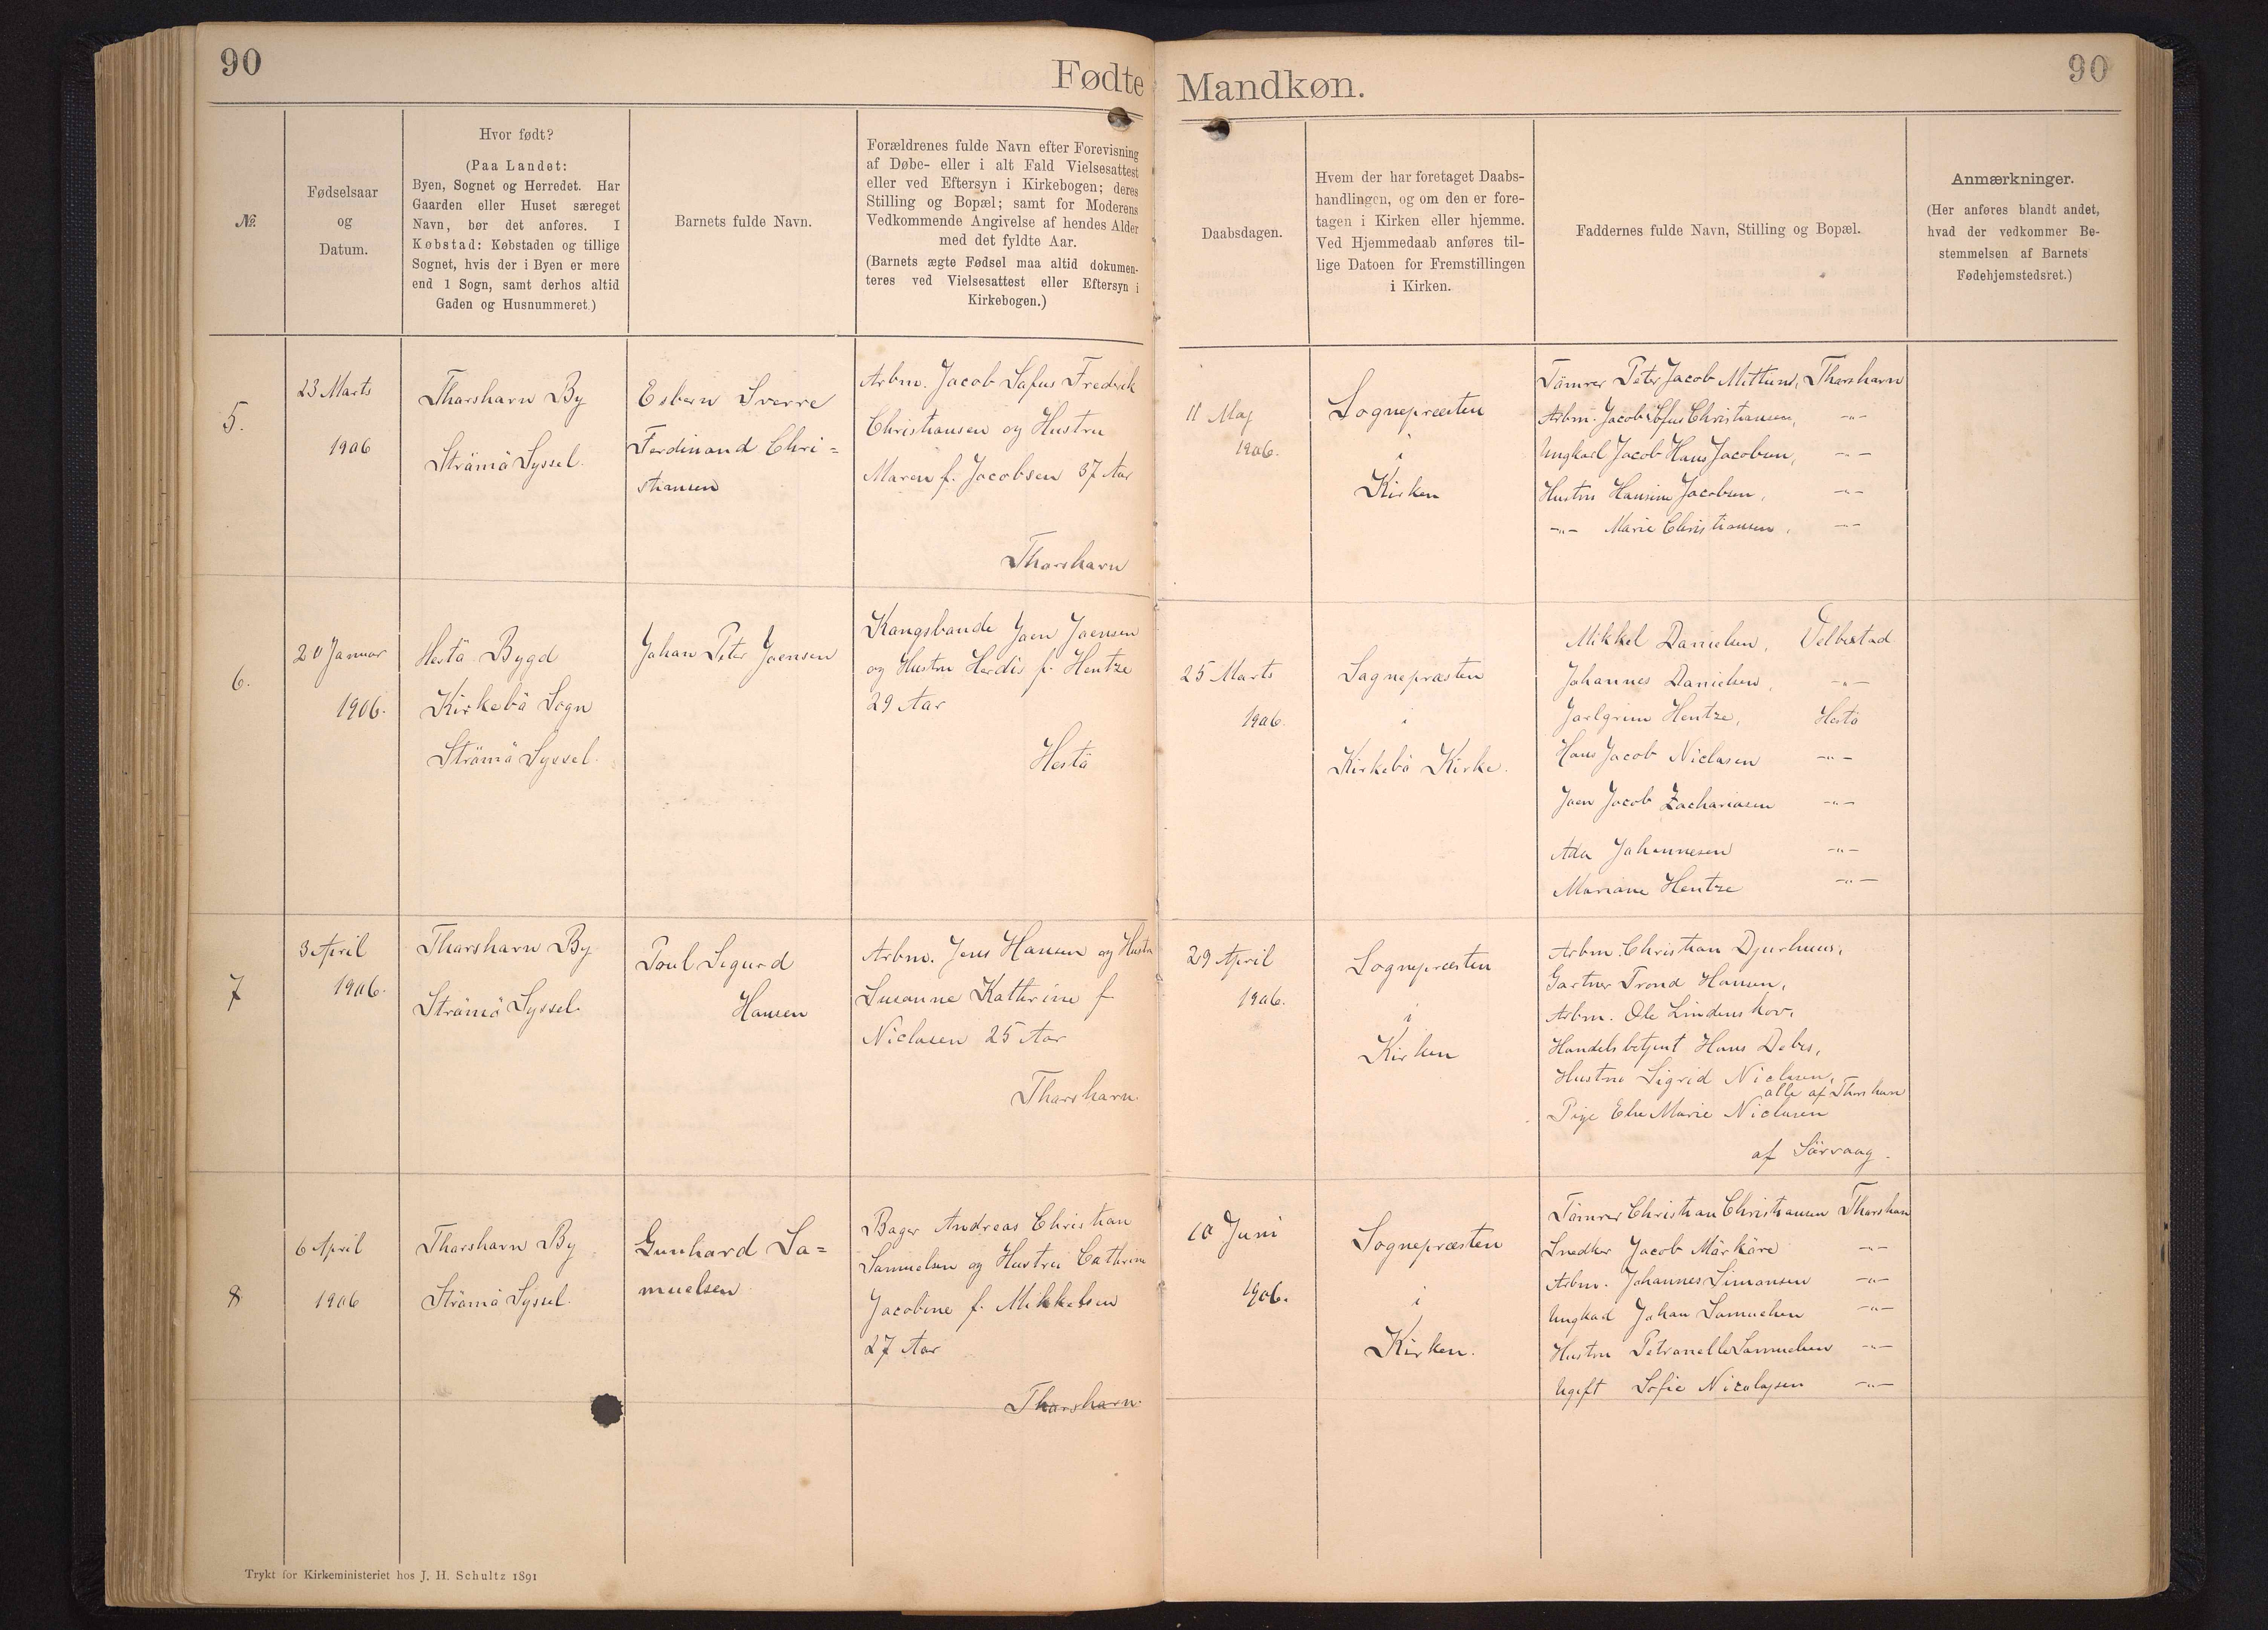 90
Fødte
Mandkøn.
90
№
Fødselsaar
og
Datum.
Hvor født?
(Paa Landet:
Byen, Sognet og Herredet. Har
Gaarden eller Huset særeget
Navn, bør det anføres. I
Købstad: Købstaden og tillige
Sognet, hvis der i Byen er mere
end 1 Sogn, samt derhos altid
Gaden og Husnummeret.)
Barnets fulde Navn.
Forældrenes fulde Navn efter Forevisning
af Døbe- eller i alt Fald Vielsesattest
eller ved Eftersyn i Kirkebogen; deres
Stilling og Bopæl; samt for Moderens
Vedkommende Angivelse af hendes Alder
med det fyldte Aar.
(Barnets ægte Fødsel maa altid dokumen-
teres ved Vielsesattest eller Eftersyn i
Kirkebogen.)
Daabsdagen.
Hvem der har foretaget Daabs-
handlingen, og om den er fore-
tagen i Kirken eller hjemme.
Ved Hjemmedaab anføres til-
lige Datoen for Fremstillingen
i Kirken.
Faddernes fulde Navn, Stilling og Bopæl.
Anmærkninger.
(Her anføres blandt andet,
hvad der vedkommer Be-
stemmelsen af Barnets
Fødehjemstedsret.)
5.
23 Marts
1906
Thorshavn By
Strömö Syssel.
Esbern Sverre
Ferdinand Chri=
stiansen
Arbm. Jacob Sofus Fredrik
Christiansen og Hustru
Maren f. Jacobsen 37 Aar
Thorshavn
11 Maj
1906.
Sognepræsten
i
Kirken
Tömrer Peter Jacob Mitlund, Thorshavn
Arbm. Jacob Sofus Christiansen, -"-
Ungkarl Jacob Hans Jacobsen, -"-
Hustru Hansine Jacobsen, -"-
-"- Marie Christiansen, -"-
6.
20 Januar
1906.
Hestö Bygd
Kirkebö Sogn
Strömö Syssel.
Johan Peter Joensen
Kongsbonde Joen Joensen
og Hustru Herdis f. Hentze
29 Aar
Hestö
25 Marts
1906.
Sognepræsten
i
Kirkebö Kirke.
Mikkel Danielsen, Velbestad
Johannes Danielsen, -"-
Jarlgrim Hentze, Hestö
Hans Jacob Niclasen -"-
Joen Jacob Zachariasen -"-
Ada Johannesen -"-
Mariane Hentze -"-
7
3 April
1906.
Thorshavn By
Strömö Syssel.
Poul Sigurd
Hansen
Arbm. Jens Hansen og Hustru
Susanne Kathrine f.
Niclasen 25 Aar
Thorshavn.
29 April
1906.
Sognepræsten
i
Kirken
Arbm. Christian Djurhuus,
Gartner Trond Hansen,
Arbm. Ole Lindenskov,
Handelsbetjent Hans Debes,
Hustru Sigrid Niclasen,
alle af Thorshavn
Pige Else Marie Niclasen
af Sörvaag.
8
6 April
1906
Thorshavn By
Strömö Syssel.
Gunhard Sa=
muelsen
Bager Andreas Christian
Samuelsen og Hustru Cathrine
Jacobine f. Mikkelsen
27 Aar
Thorshavn.
10 Juni
1906.
Sognepræsten
i
Kirken.
Tömrer Christian Christiansen Thorshavn
Snedker Jacob Mörköre -"-
Arbm. Johannes Simonsen -"-
Ungkarl Johan Samuelsen -"-
Hustru Petronelle Samuelsen -"-
Ugift Sofie Nicolajsen -"-
Trykt for Kirkeministeriet hos J. H. Schultz 1891